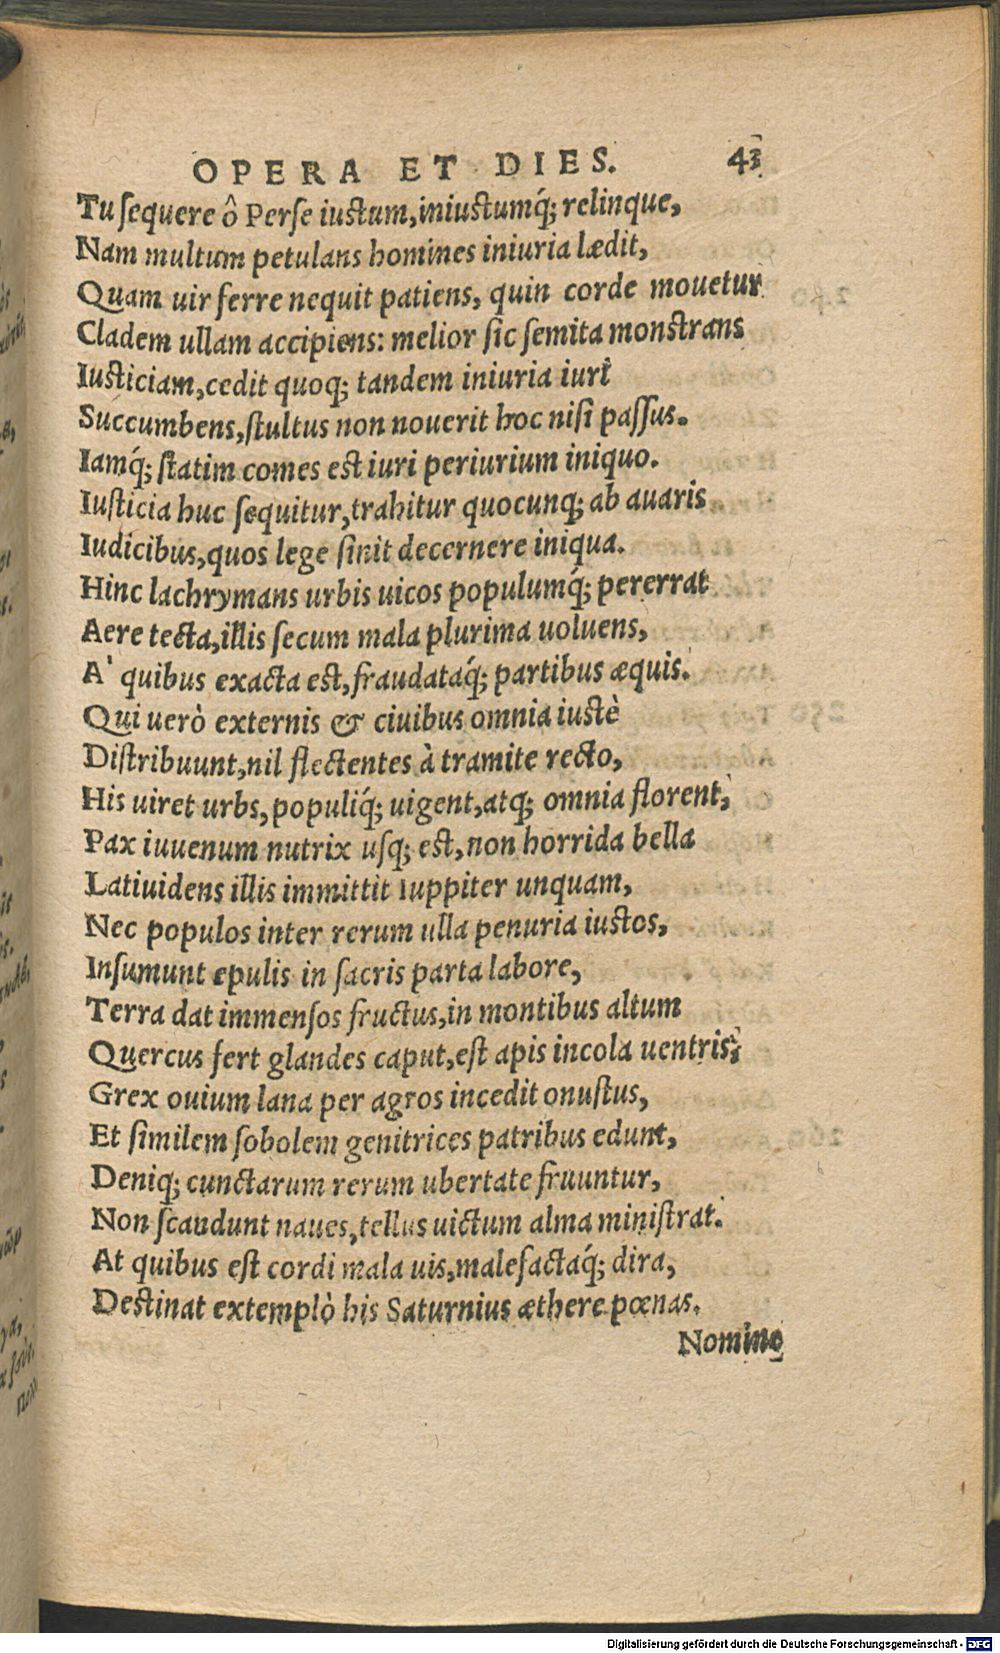 OPERA ET DIES. 43
Tu ſequere ô Perſe iuſtum,iniuſtumq́; relinque,
Nam multum petulans homines iniuria lædit,
Quam uir ferre nequit patiens, quin corde mouetur
Cladem ullam accipiens: melior ſic ſemita monſtrans
Iuſticiam,cedit quoq; tandem iniuria iuri
Succumbens,ſtultus non nouerit hoc niſi paſſus.
Iamq́; ſtatim comes eſt iuri periurium iniquo.
Iuſticia huc ſequitur,trahitur quocunq; ab auaris
Iudicibus,quos lege ſinit decernere iniqua.
Hinc lachrymans urbis uicos populumq́; pererrat
Aere tecta,illis ſecum mala plurima uoluens,
A' quibus exacta eſt,fraudataq́; partibus æquis.
Qui uerò externis & ciuibus omnia iuſtè
Diſtribuunt,nil flectentes à tramite recto,
His uiret urbs,populiq́; uigent,atq; omnia florent,
Pax iuuenum nutrix uſq; eſt,non horrida bella
Latiuidens illis immittit Iuppiter unquam,
Nec populos inter rerum ulla penuria iuſtos,
Inſumunt epulis in ſacris parta labore,
Terra dat immenſos fructus,in montibus altum
Quercus fert glandes caput,eſt apis incola uentris;
Grex ouium lana per agros incedit onuſtus,
Et ſimilem ſobolem genitrices patribus edunt,
Deniq; cunctarum rerum ubertate fruuntur,
Non ſcandunt naues,tellus uictum alma miniſtrat.
At quibus eſt cordi mala uis,malefactaq́; dira,
Deſtinat extemplò his Saturnius æthere pœnas.
Nomine
Digitalisierung gefördert durch die Deutsche Forschungsgemeinschaft - DFG